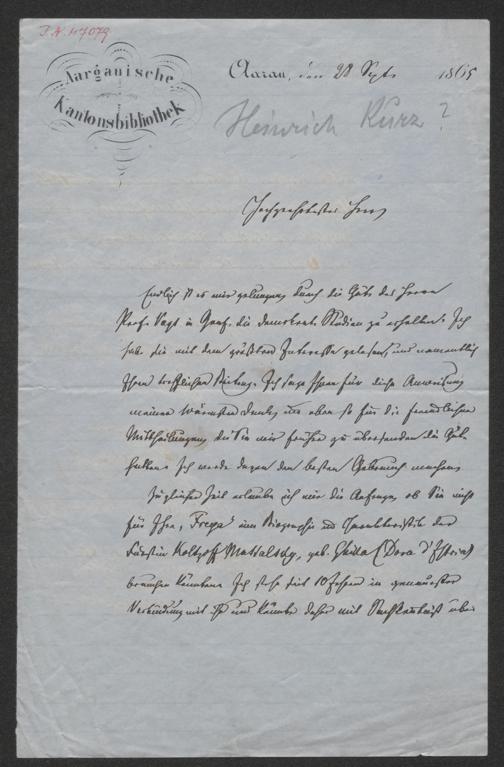 I.N. 117079
Aargauische
Kantonsbibliothek
Aarau, den 28 Septr 1865
Heinrich Kurz?
Hochgeehrtester Herr,
Endlich ist es mir gelungen, durch die Güte des Herrn
Prof. Vogt in Genf die demokrat. Studien zu erhalten. Ich
habe sie mit dem größten Interesse gelesen, und namentlich
Ihren trefflichen Beitrag. Ich sage Ihnen für diese
meinen wärmsten Dank, eben so für die freundlichen
Mittheilungen, die Sie mir früher zu übersenden die Güte
hatten. Ich werde davon den besten Gebrauch machen.
Zugleicher Zeit erlaube ich mir die Anfrage, ob Sie nicht
für Ihre „Freya“ eine Biographie und Charakteristik der
Fürstin Koltzoff Massalsky, geb. Ghika (Dora d'Istria)
brauchen könnten. Ich stehe seit 10 Jahren in genauester
Verbindung mit ihr und könnte daher mit Sachkenntniß über